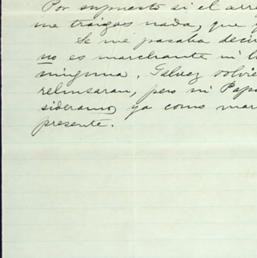 Por supuesto si el arre
me traigas nada, que y
Se me pasaba decir
no es marchante ni l
ninguna. Galvez volvie
rehusaran, pero mi Papa
sideramos ya como mar
presente.